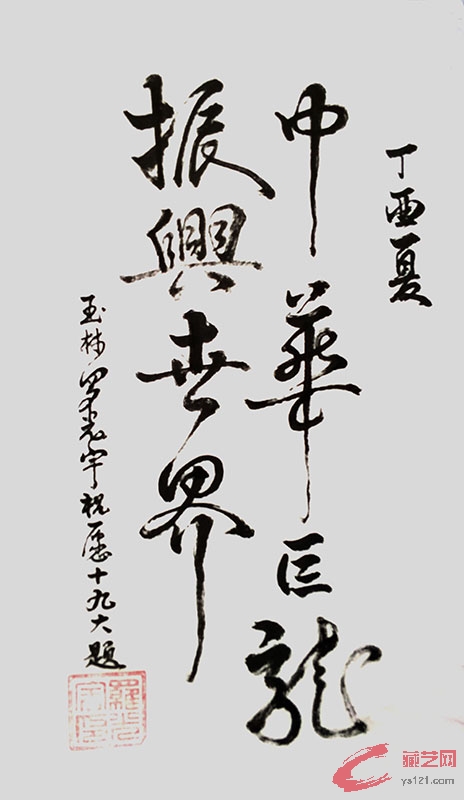 丁酉夏
中華巨龍
振興世界
玉林罗光宇祝愿十九大题
羅光宇印
藏艺网
ys121.com